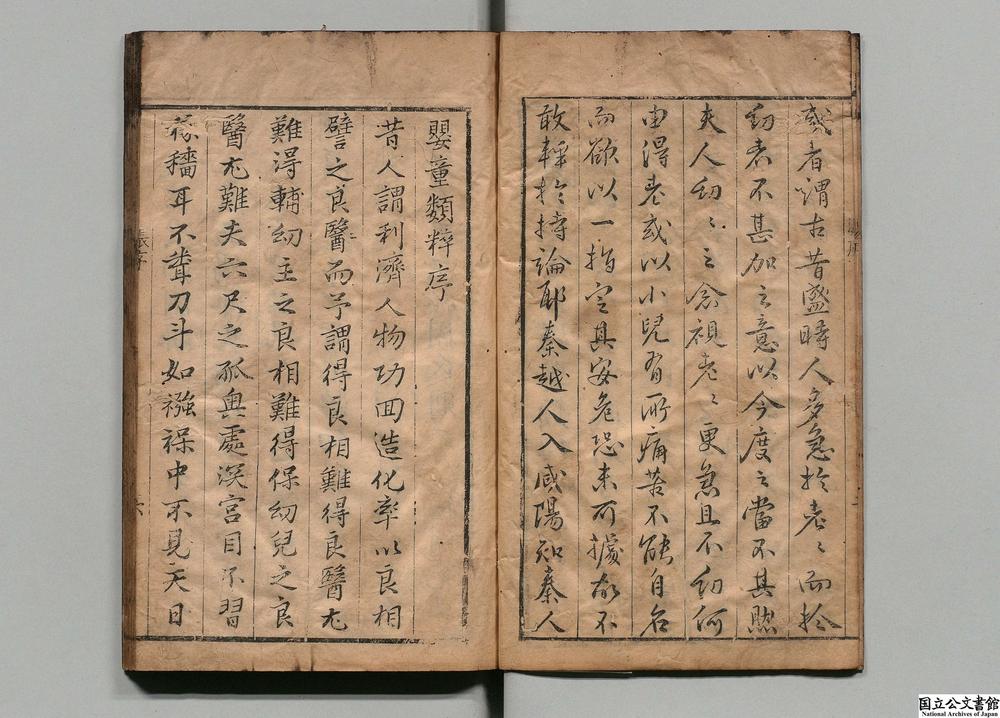 或者謂古昔盛時人多急於老〻而於
幼者不甚加之意以今度之當不其然
夫人幼〻之念視老〻更急且不幼何
由得老或以小兒有所痛苦不能自名
而欲以一指定其安危恐未可據故不
敢輕於持論耶秦越人入咸陽知秦人
嬰童類粹序
昔人謂利濟人物功回造化率以良相
譬之良醫而予謂得良相難得良醫尤
難得輔幼主之良相難得保幼兒之良
醫尤難夫六尺之孤奧處深宮目不習
耳不聳刀斗如襁褓中不見天日
張序
六
国立公文書館
National Archives of Japan